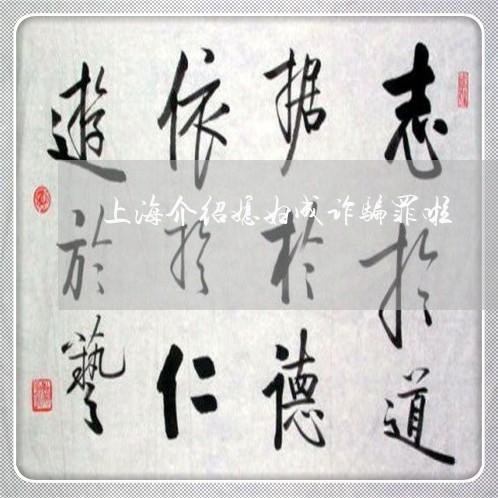 志於道
据於德
依於仁
遊於藝
上海介绍媳妇成诈骗罪啦